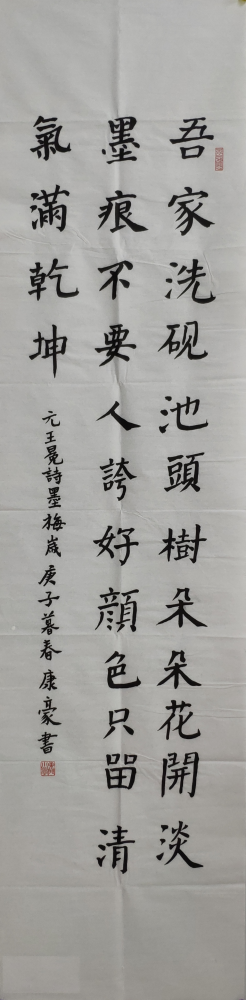 吾家洗硯池頭樹朵朵花開淡
墨痕不要人誇好顏色只留清
氣滿乾坤
元王冕詩墨梅歲庚子暮春康豪書